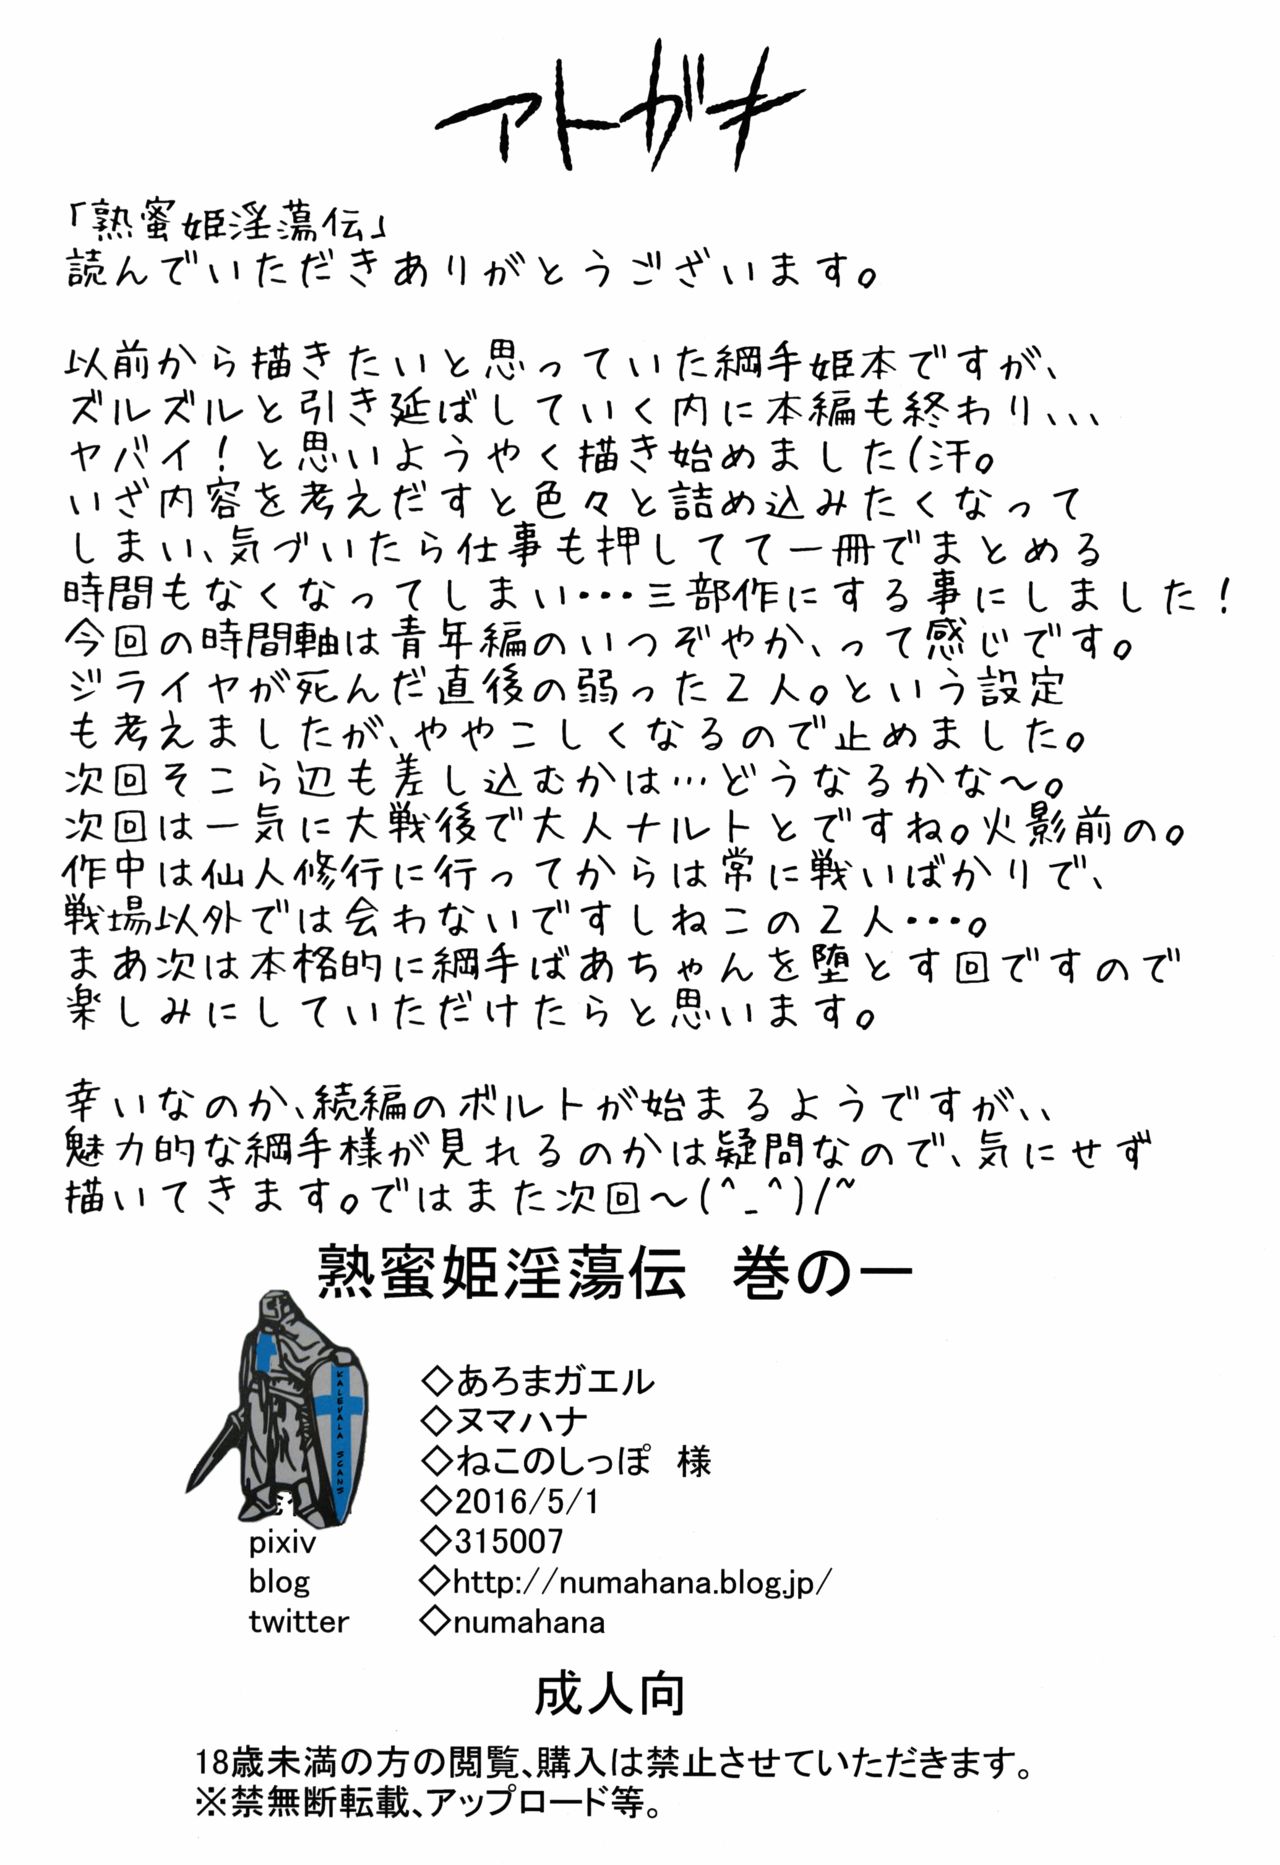 アトガキ
「熟蜜姫淫蕩伝」
読んでいただきありがとうございます。
以前から描きたいと思っていた綱手姫本ですが、
ズルズルと引き延ばしていく内に本編も終わり、、、
ヤバイ!と思いようやく描き始めました(汗。
いざ内容を考えだすと色々と詰め込みたくなって
しまい、気づいたら仕事も押してて一冊でまとめる
時間もなくなってしまい・・・三部作にする事にしました!
今回の時間軸は青年編のいつぞやか、って感じです。
ジライヤが死んだ直後の弱った2人。という設定
も考えましたが、ややこしくなるので止めました。
次回そこら辺も差し込むかは…どうなるかな〜。
次回は一気に大戦後で大人ナルトとですね。火影前の。
作中は仙人修行に行ってからは常に戦いばかりで、
戦場以外では会わないですしねこの2人・・・。
まあ次は本格的に綱手ばあちゃんを堕とす回ですので
楽しみにしていただけたらと思います。
幸いなのか、続編のボルトが始まるようですが、、
魅力的な綱手様が見れるのかは疑問なので、気にせず
描いてきます。ではまた次回〜(^_^)/~
熟蜜姫淫蕩伝 巻の一
◇あろまガエル
◇ヌマハナ
◇ねこのしっぽ 様
◇2016/5/1
pixiv ◇315007
blog ◇http://numahana.blog.jp/
twitter ◇numahana
KALEVALA SCANS
成人向
18歳未満の方の閲覧、購入は禁止させていただきます。
※禁無断転載、アップロード等。